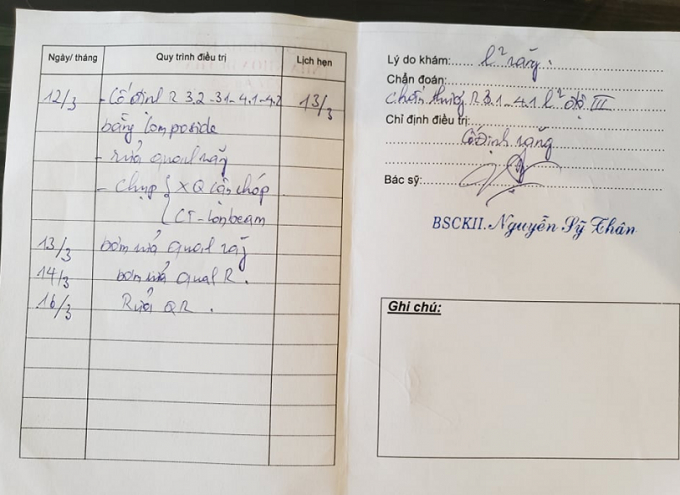 Ngày/ tháng Quy trình điều trị Lịch hẹn
12/3 - Cố định R 3.2-31-4.1-4.2 13/3
bằng Composide
- rửa quanh răng
- Chụp { XQ cận chóp
CT-Conbeam
13/3 bơm rửa quanh răng
14/3 bơm rửa quanh R.
16/3 Rửa QR.
Lý do khám: l² răng.
Chẩn đoán:
chấn thương R 3.1-4.1 l² độ III
Chỉ định điều trị:
Cố Định răng
Bác sỹ:
BSCKII. Nguyễn Sỹ Thân
Ghi chú: